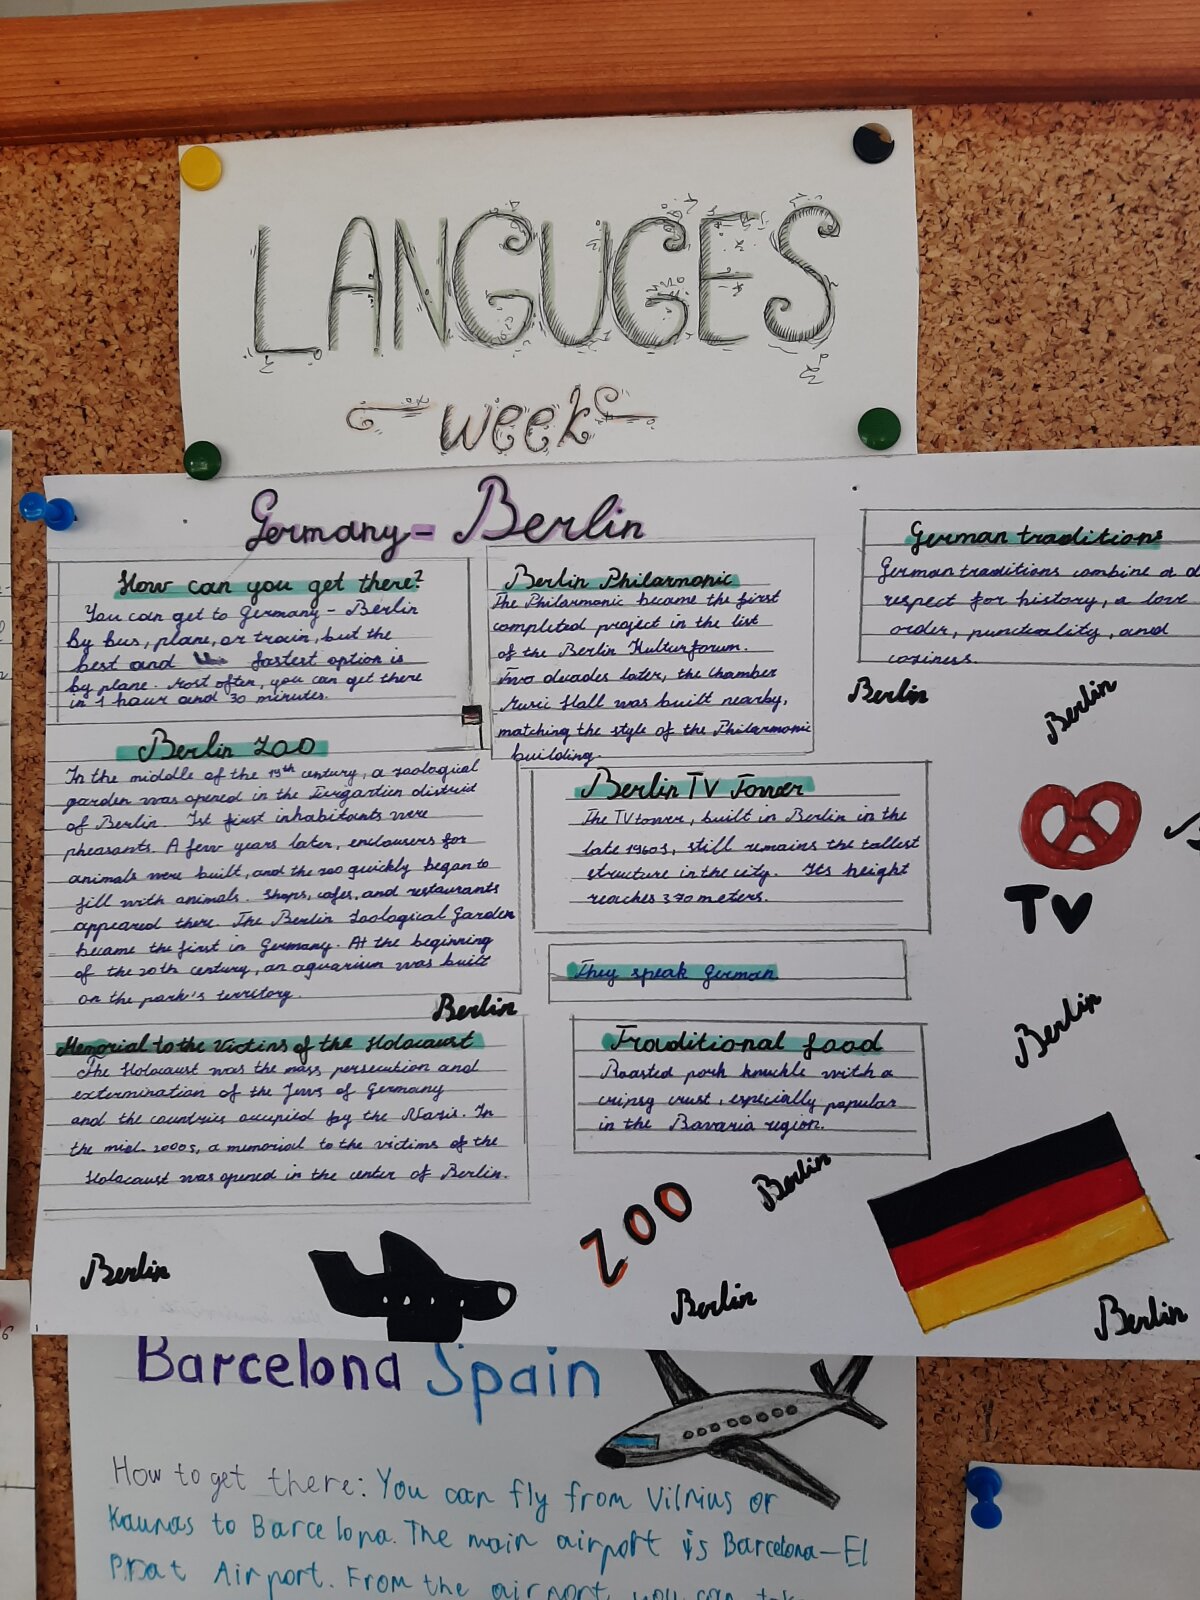 LANGUGES
week
Germany - Berlin
How can you get there?
You can get to Germany - Berlin
by bus, plane, or train, but the
best and fastest option is
by plane. Most often, you can get there
in 1 hour and 30 minutes.
Berlin ZOO
In the middle of the 19th century, a zoological
garden was opened in the Tiergarten district
of Berlin. Its first inhabitants were
pheasants. A few years later, enclousers for
animals were built, and the zoo quickly began to
fill with animals. Shops, cafes, and restaurants
appeared there. The Berlin Zoological Garden
became the first in Germany. At the beginning
of the 20th century, an aquarium was built
on the park's territory.
Berlin
Memorial to the Victims of the Holocaust
The Holocaust was the mass persecution and
extermination of the Jews of Germany
and the countries occupied by the Nazis. In
the mid-2000s, a memorial to the victims of the
Holocaust was opened in the center of Berlin.
Berlin Philarmonic
The Philarmonic became the first
completed project in the list
of the Berlin Kulturforum.
Two decades later, the Chamber
Music Hall was built nearby,
matching the style of the Philarmonic
building.
Berlin TV Tower
The TV tower, built in Berlin in the
late 1960s, still remains the tallest
structure in the city. Its height
reaches 370 meters.
They speak German
Traditional food
Roasted pork knuckle with a
cripsy crust, especially popular
in the Bavaria region.
German traditions
German traditions combine a d
respect for history, a love
order, punctuality, and
coziness.
Berlin
Berlin
TV
Berlin
Berlin
ZOO
Berlin
Berlin
Berlin
Barcelona Spain
How to get there: You can fly from Vilnius or
Kaunas to Barcelona. The main airport is Barcelona-El
Prat Airport. From the airport, you can take